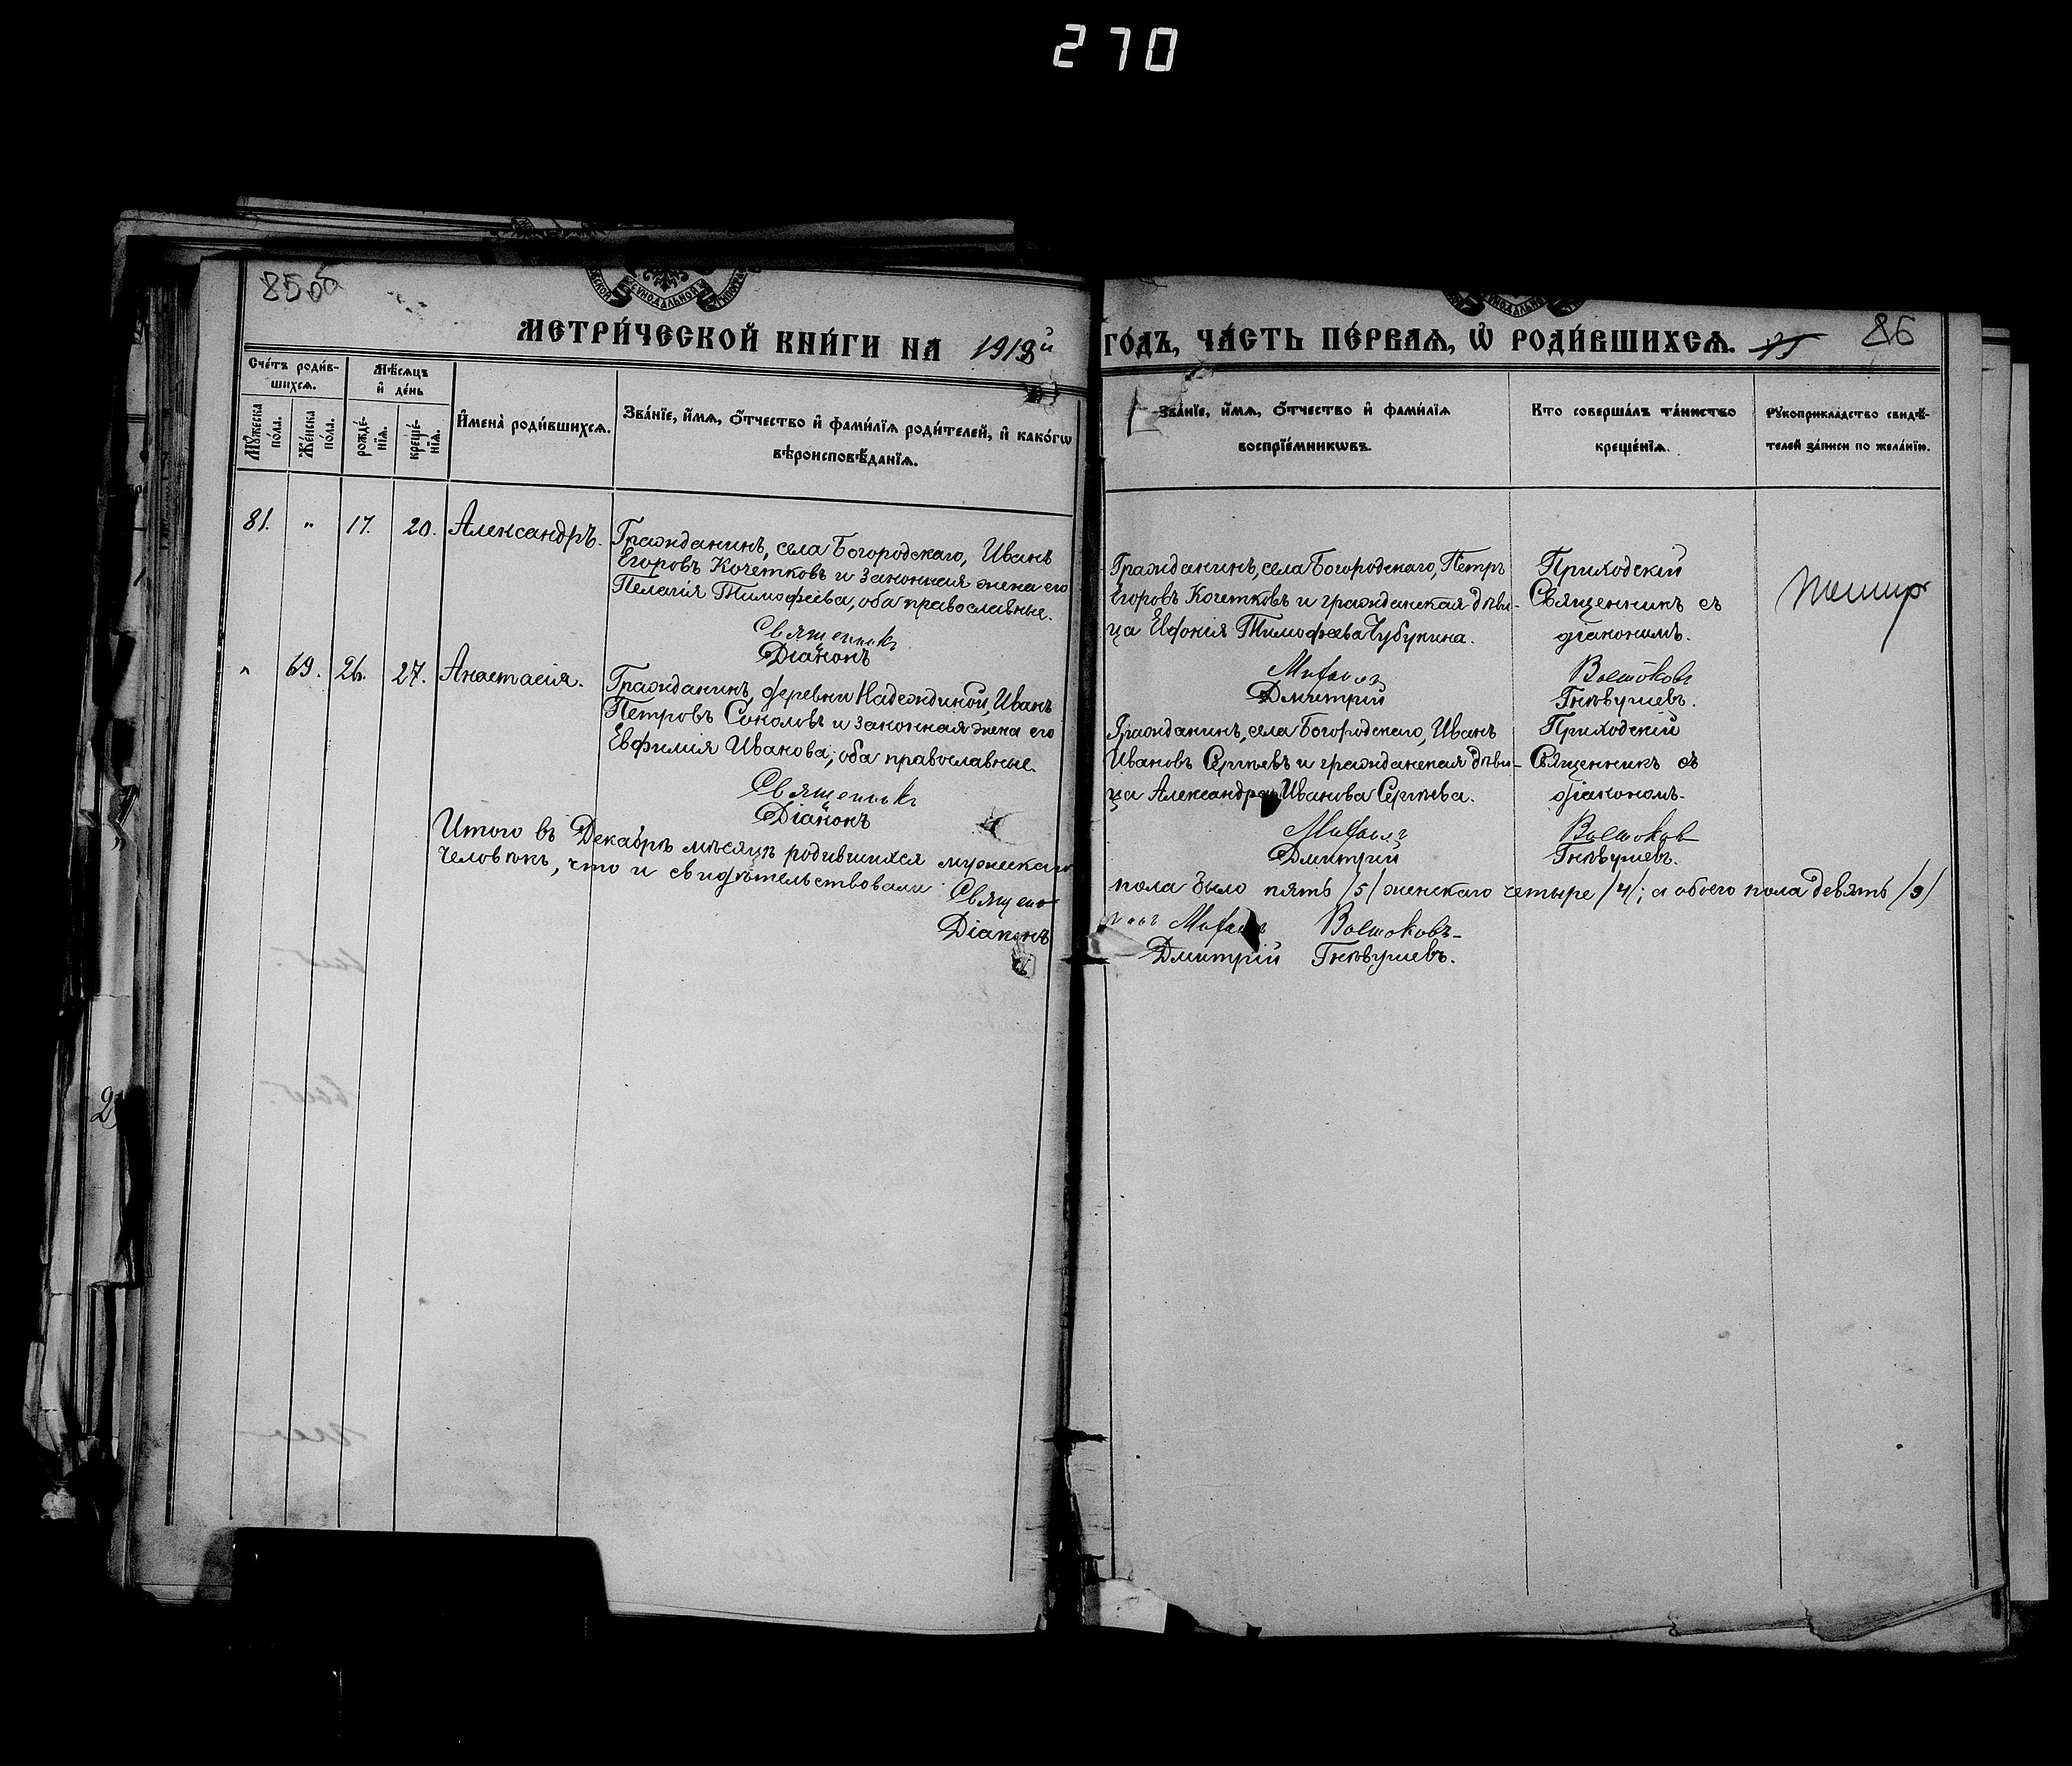 270
85об
86
МЕТРИ́ЧЕСКОЙ КНИ́ГИ НА 1918й
ГО́ДЪ, ЧА́СТЬ ПЕ́РВАѦ, Ѡ҆ РОДИ́ВШИХСѦ.
Сче́тъ роди́в-
шихсѧ.
Мѣ́сѧцъ
и҆ де́нь
Мꙋ́жеска
по́ла.
Же́нска
по́ла.
рожде́-
нїѧ.
креще́-
нїѧ.
И҆мена̀ роди́вшихсѧ.
Зва́нїе, и҆́мѧ, ѻ҆́тчество и҆ фами́лїѧ роди́телей, и҆ како́гѡ
вѣроисповѣ́данїѧ.
Зва́нїе, и҆́мѧ, ѻ҆́тчество и҆ фами́лїѧ
воспрїе́мникѡвъ.
Кто соверша́лъ та́инство
креще́нїѧ.
Рꙋкоприкла́дство свидѣ́-
телей за́писи по жела́нїю.
81. " 17. 20. Александръ.
Гражданинъ, села Богородскаго, Иванъ
Егоровъ Кочетковъ и законная жена его
Пелагія Тимофеева, оба православные.
Священникъ
Діаконъ
Гражданинъ, села Богородскаго, Петръ
Егоровъ Кочетковъ и гражданская дѣви-
ца Евфонія Тимофеева Чубукина.
Михаилъ
Дмитрій
Приходскій
Священникъ съ
діакономъ.
Востоковъ
Гнѣвушевъ.
" 69. 26. 27. Анастасія.
Гражданинъ, деревни Надеждиной, Иванъ
Петровъ Соколовъ и законная жена его
Евфимія Иванова; оба православные.
Священникъ
Діаконъ
Гражданинъ, села Богородскаго, Иванъ
Ивановъ Сергѣевъ и гражданская дѣви-
ца Александра Иванова Сергѣева.
Михаилъ
Дмитрий
Приходскій
Священникъ съ
діакономъ.
Востоковъ
Гнѣвушевъ.
Итого въ Декабрѣ мѣсяцѣ родившихся мужескаго
пола было пять /5/ женскаго четыре /4/; а обоего пола девять /9/
человѣкъ, что и свидѣтельствовали
Священникъ Михаилъ Востоковъ
Діаконъ Дмитрій Гнѣвушевъ.